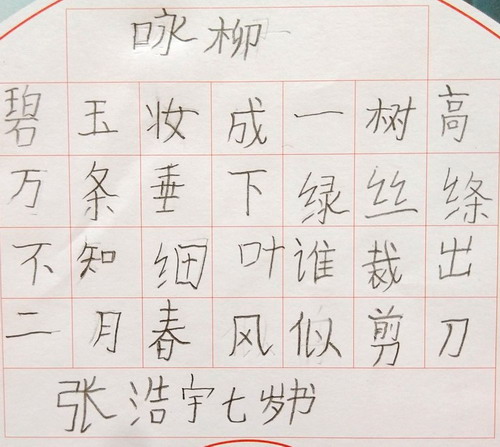 咏柳
碧玉妆成一树高
万条垂下绿丝绦
不知细叶谁裁出
二月春风似剪刀
张浩宇七岁书